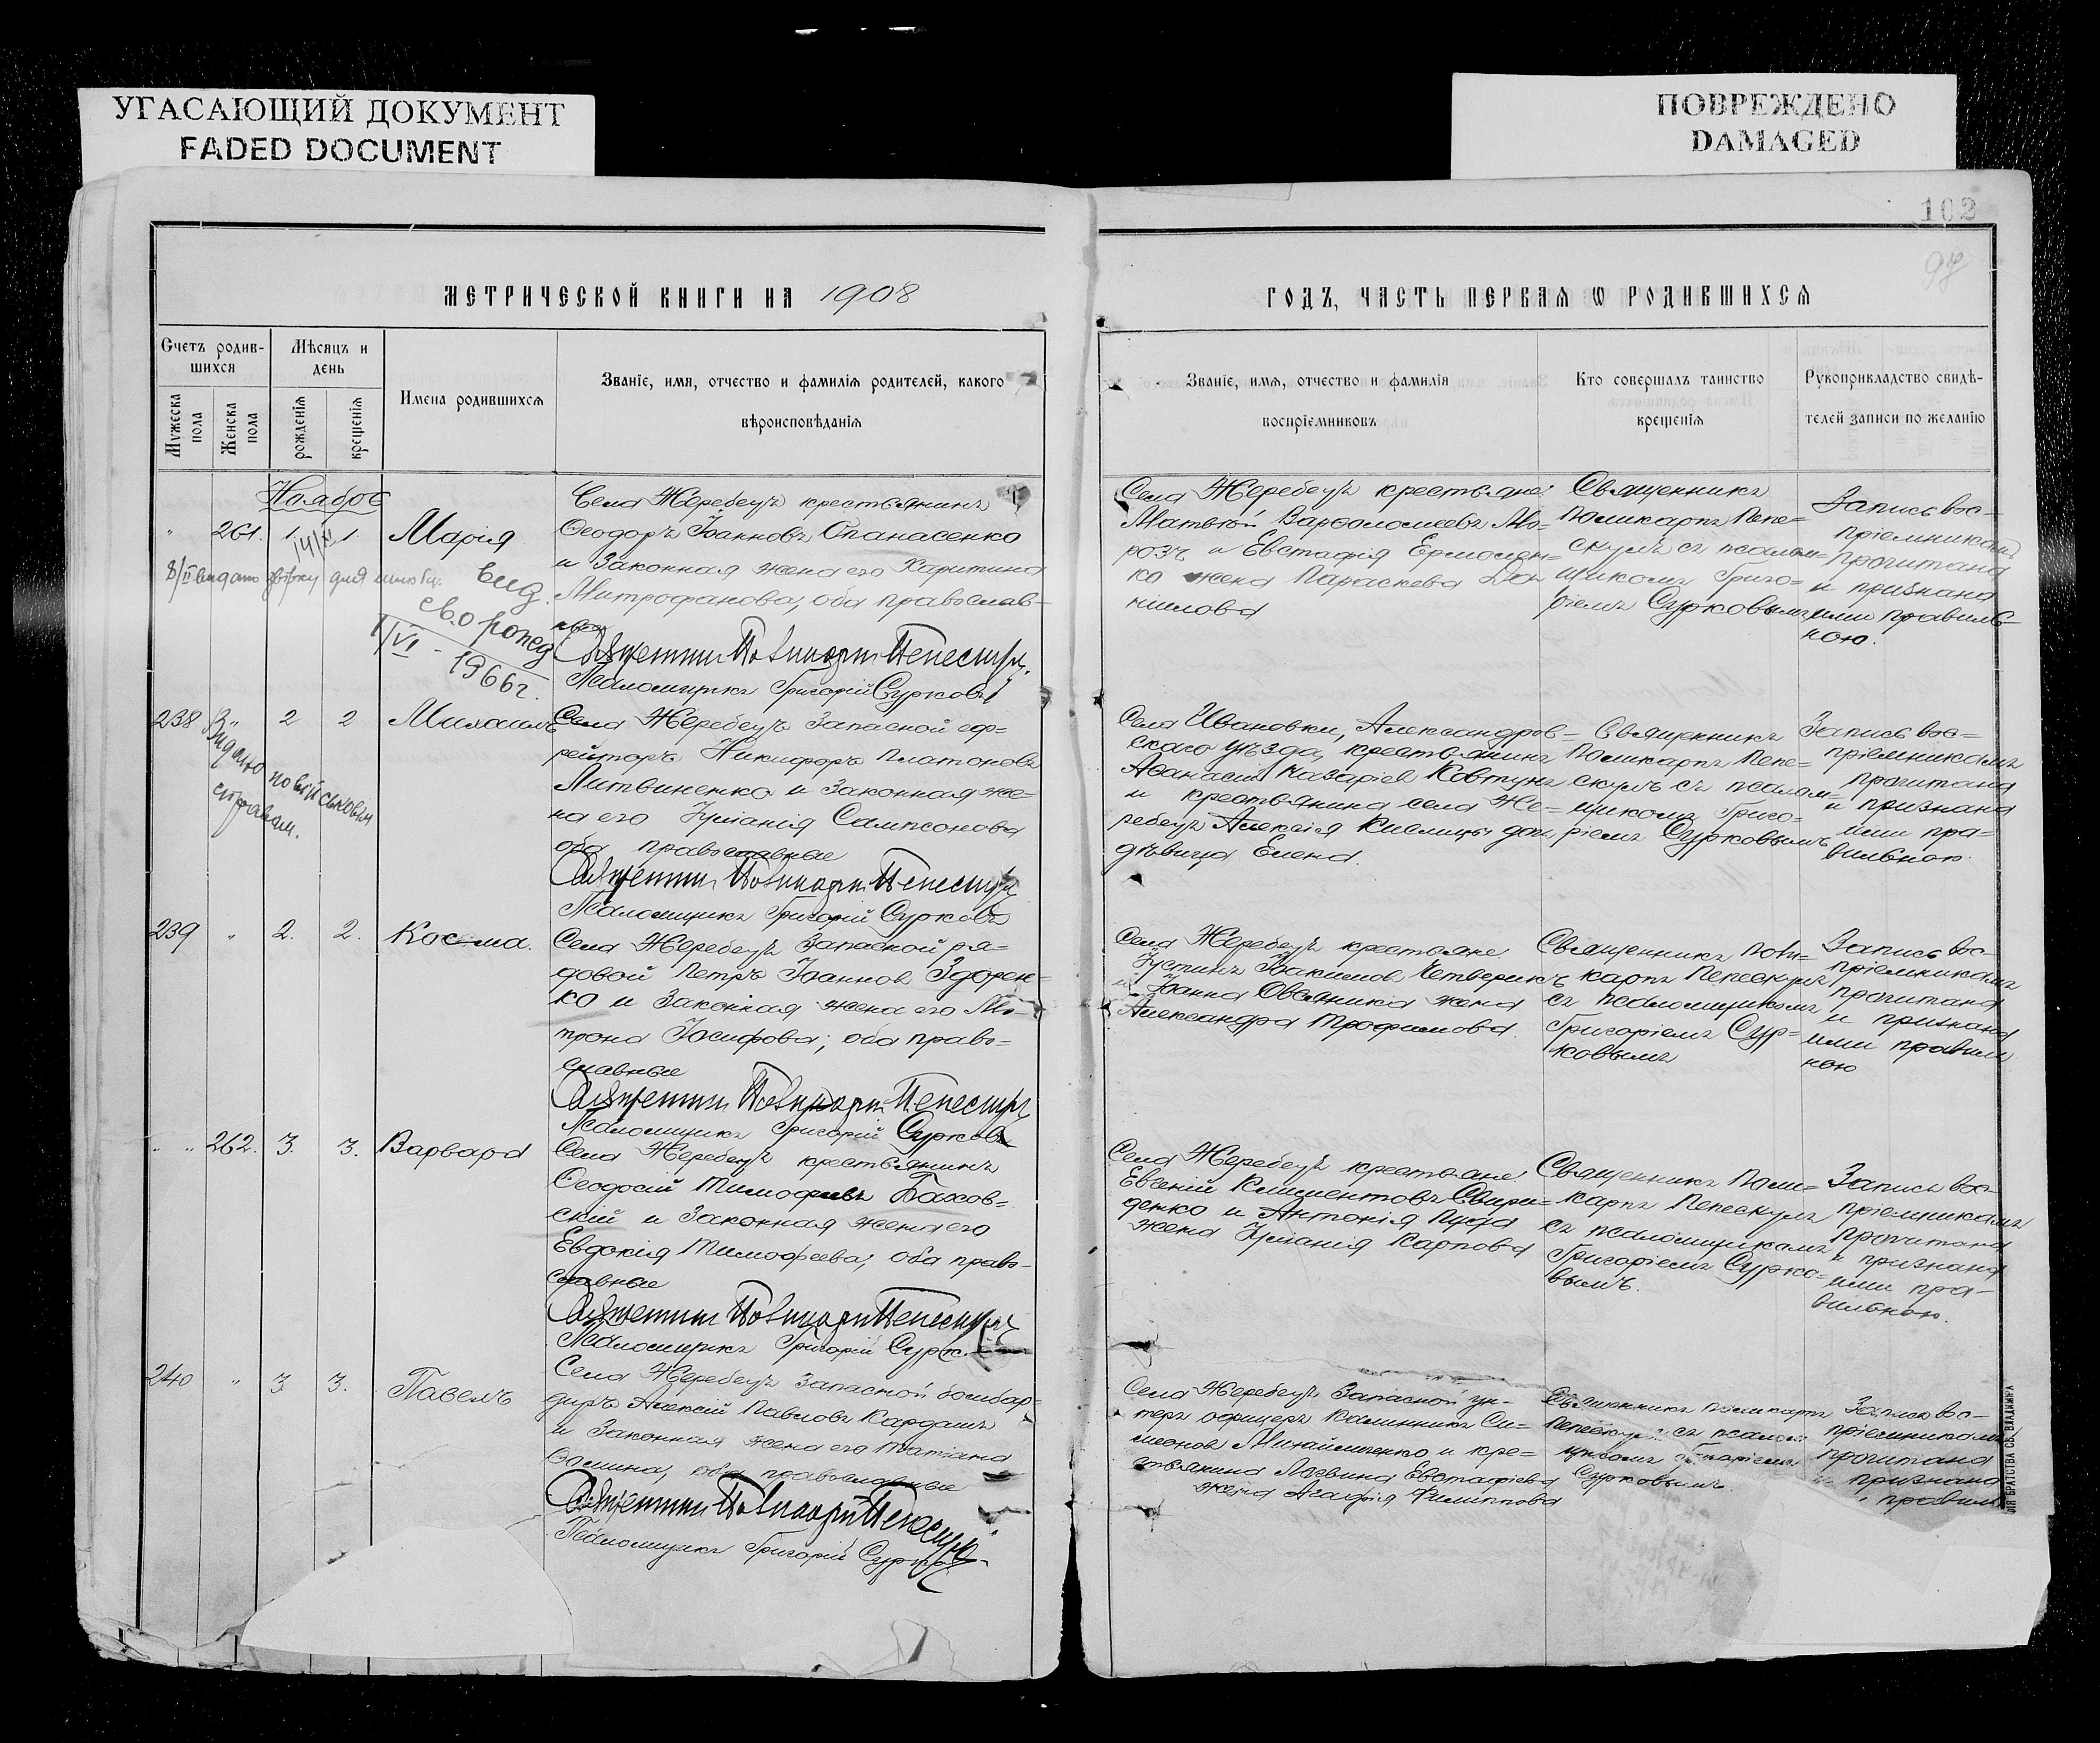 УГАСАЮЩИЙ ДОКУМЕНТ
FADED DOCUMENT
ПОВРЕЖДЕНО
DAMAGED
102
97
МЕТРИЧЕСКОЙ КНИГИ НА 1908
ГОДЪ, ЧАСТЬ ПЕРВАЯ Ѡ РОДИВШИХСЯ
Счетъ родив-
шихся
Мужеска
пола
Женска
пола
Мѣсяцъ и
день
рожденія
крещенія
Имена родившихся
Званіе, имя, отчество и фамилія родителей, какого
вѣроисповѣданія
Званіе, имя, отчество и фамилія
воспріемниковъ
Кто совершалъ таинство
крещенія
Рукоприкладство свидѣ-
телей записи по желанію
Ноябрь
" 261. 1 1 Марія
Села Жеребецъ крестьянинъ
Ѳеодоръ Іоанновъ Опанасенко
и законная жена его Харитина
Митрофанова, оба православ-
ные
Священникъ Поликарпъ Пепескулъ
Псаломщикъ Григорій Сурковъ
Села Жеребецъ крестьяне:
Матвѣй Варѳоломеевъ Мо-
розъ и Евстафія Ермолен-
ко жена Параскева Да-
ніилова
Священникъ
Поликарпъ Пепе-
скулъ съ псалом-
щикомъ Григо-
ріемъ Сурковымъ
Запись вос-
пріемникамъ
прочитана
и признана
ими правиль-
ною.
вид.
св. о рожд
1/VI - 1966 г.
238 " 2 2 Михаилъ
Видано по військовим
справам.
Села Жеребецъ запасной еф-
рейторъ Никифоръ Платоновъ
Литвиненко и законная же-
на его Іуліанія Сампсонова
оба православные
Священникъ Поликарпъ Пепескулъ
Псаломщикъ Григорій Сурковъ
Села Ивановки, Александров-
скаго уѣзда, крестьянинъ
Аѳанасій Назаріев Ковтунъ
и крестьянина села Же-
ребецъ Алексія Кислицы доч.
дѣвица Елена.
Священникъ
Поликарпъ Пепе-
скулъ съ псалом-
щикомъ Григо-
ріемъ Сурковымъ
Запись вос-
пріемникамъ
прочитана
и признана
ими пра-
вильною.
239 " 2. 2. Косьма.
Села Жеребецъ запасной ря-
довой Петръ Іоаннов Здорен-
ко и законная жена его Ма-
трона Іосифова; оба право-
славные
Священникъ Поликарпъ Пепескулъ
Псаломщикъ Григорій Сурковъ
Села Жеребецъ крестьяне
Іустинъ Іоакимов Четверикъ
и Іоанна Овсяника жена
Александра Трофимова.
Священникъ Поли-
карпъ Пепескулъ
съ псаломщикомъ
Григоріемъ Сур-
ковымъ
Запись вос-
пріемникамъ
прочитана
и признана
ими правиль
ною
" " 262. 3. 3. Варвара
Села Жеребецъ крестьянинъ
Ѳеодосій Тимофеевъ Бахов-
скій и законная жена его
Евдокія Тимофеева, оба право-
славные
Священникъ Поликарпъ Пепескулъ
Псаломщикъ Григорій Сурк
Села Жеребецъ крестьяне
Евгеній Климентовъ Свири-
денко и Антонія Пуда
жена Іуліанія Карпова
Священникъ Поли-
карпъ Пепескулъ
съ псаломщикомъ
Григоріемъ Сурко-
вымъ.
Запись вос-
пріемникамъ
прочитана
и признана
ими пра-
вильною.
240 " 3 3. Павелъ
Села Жеребецъ запасной бомбар-
диръ Алексій Павловъ Кардашъ
и законная жена его Татіана
Ѳомина, оба православные
Священникъ Поликарпъ Пепескулъ
Псаломщикъ Григорій Сурковъ
Села Жеребецъ запасной ун-
теръ офицеръ Калинникъ Си-
меонов Михайличенко и кре-
стьянина Логвина Евстафіева
жена Агафія Филиппова
Священникъ Поликарпъ
Пепескулъ съ псалом
щикомъ Григоріемъ
Сурковымъ
Запись вос-
пріемникамъ
прочитана
и признана
правил
ІЯ БРАТСТВА СВ. ВЛАДИМІРА